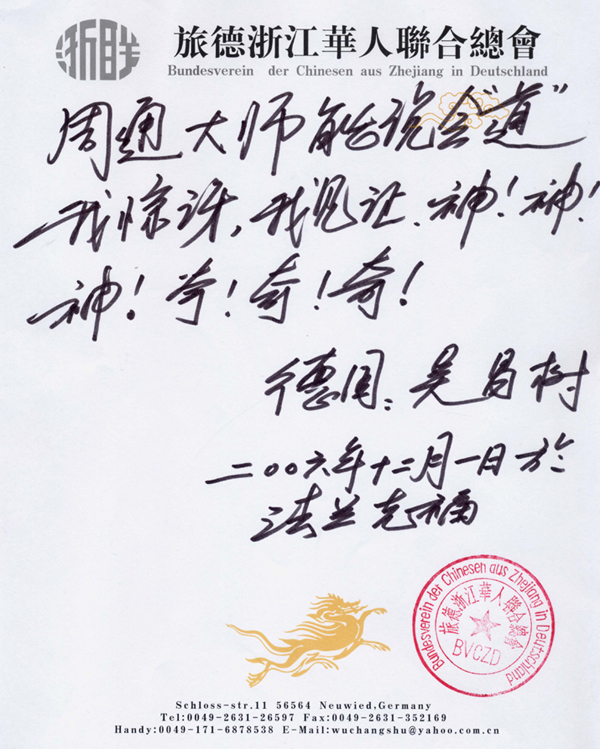 旅德浙江華人聯合總會
Bundesverein der Chinesen aus Zhejiang in Deutschland
周通大师能说会"道"
我惊讶,我见证.神!神!
神!奇!奇!奇!
德国:吴昌树
二〇〇六年十二月一日於
法兰克福
Bundesverein der Chinesen aus Zhejiang in Deutschland
旅德浙江華人聯合總會
BVCZD
Schloss-str.11 56564 Neuwied,Germany
Tel:0049-2631-26597 Fax:0049-2631-352169
Handy:0049-171-6878538 E-Mail:wuchangshu@yahoo.com.cn